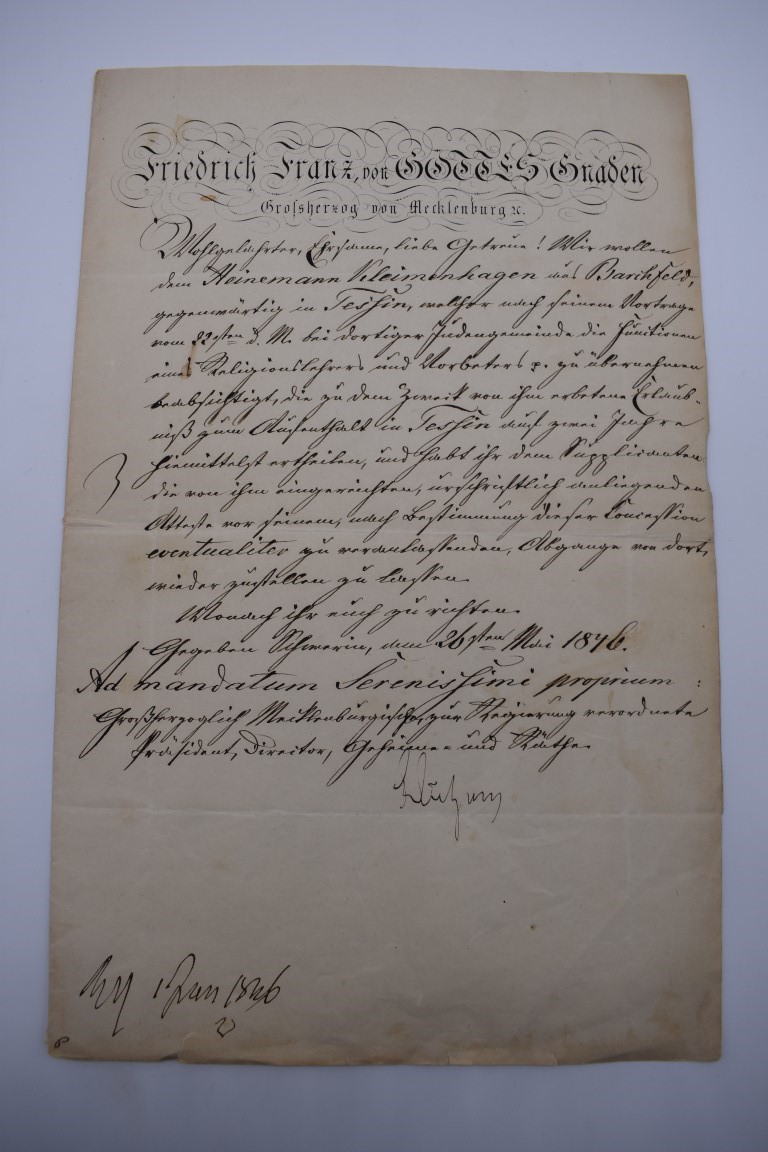 Friedrich Franz, von GOTTES Gnaden
Grossherzog von Mecklenburg ꝛc.
Wohlgelahrter, Ehrsame, liebe Getreue! Wir wollen
dem Heinemann Kleimenhagen aus Barchfeld,
gegenwärtig in Tessin, welcher nach seinem Vortrage
vom 22sten d. M. bei dortiger Judengemeinde die Functionen
eines Religionslehrers und Vorbeters p. zu übernehmen
beabsichtigt, die zu dem Zweck von ihm erbetene Erlaub-
niß zum Aufenthalt in Tessin auf zwei Jahre
hiemittelst ertheilen, und habt ihr dem Supplicanten
die von ihm eingereichten, urschriftlich anliegenden
Atteste vor seinem, nach Bestimmung dieser Concession
eventualiter zu veranlassenden, Abgange von dort,
wieder zustellen zu lassen.
Wonach ihr euch zu richten.
Gegeben Schwerin, den 26sten Mai 1846.
Ad mandatum Serenissimi proprium:
Großherzoglich Mecklenburgische, zur Regierung verordnete
Präsident, Director, Geheime- und Räthe.
1 Jun 1846